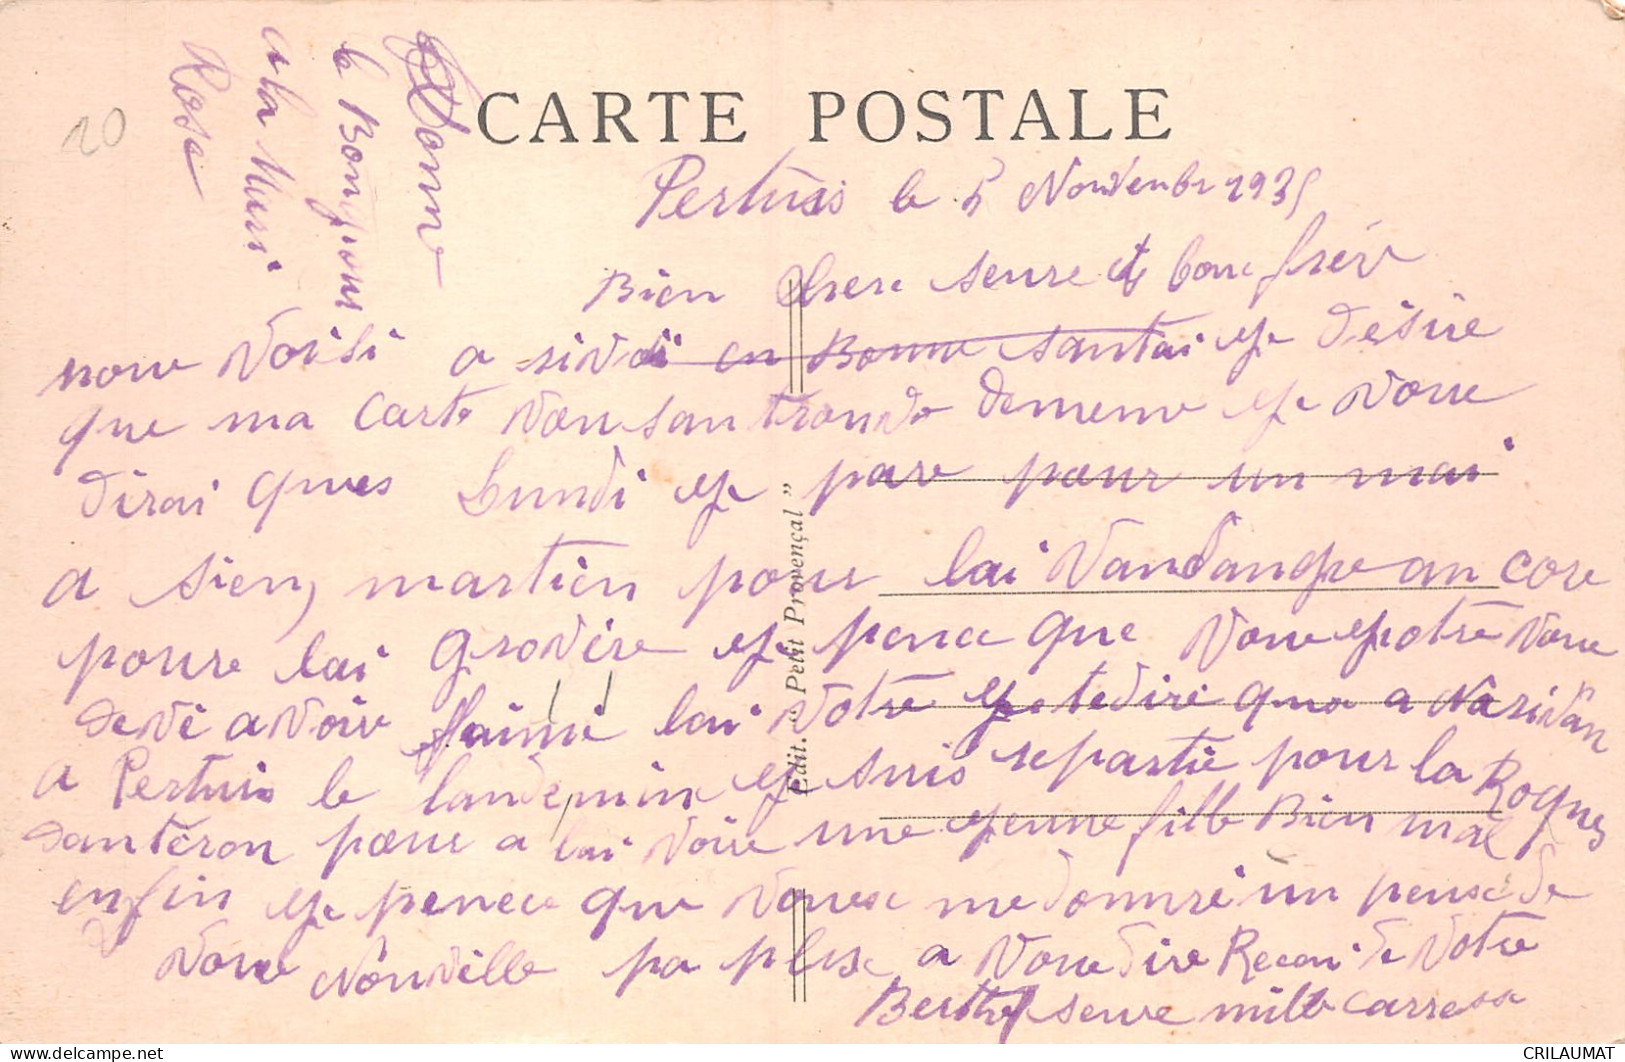 CARTE POSTALE
20
Donne
le Bonjour
a la Meri
Rose
Pertuis le 5 Novenbr 1935
Bien chere seure et bon frér
nou Voisi a rivai en Bonne santai ge désire
que ma carte vou san trouve de meme ge voue
dirai ques Lundi ge pare pour un mai
a sien, martien pour lai Vandange an core
pour lai gronière ge pence que voue potre voue
devé avoir faimi lai votre ge te dire que a n'arivan
a Pertuis le landemin ge suis repartie pour la Roques
dantéron pour a lai voire une jeune fille Bien mal
enfin ge pence que vouse me donnré un peuse de
voue nouvelle pa pluse a voue dire Recoi de votre
Berthe seure mille caresse
Edit. " Petit Provençal "
CRILAUMAT